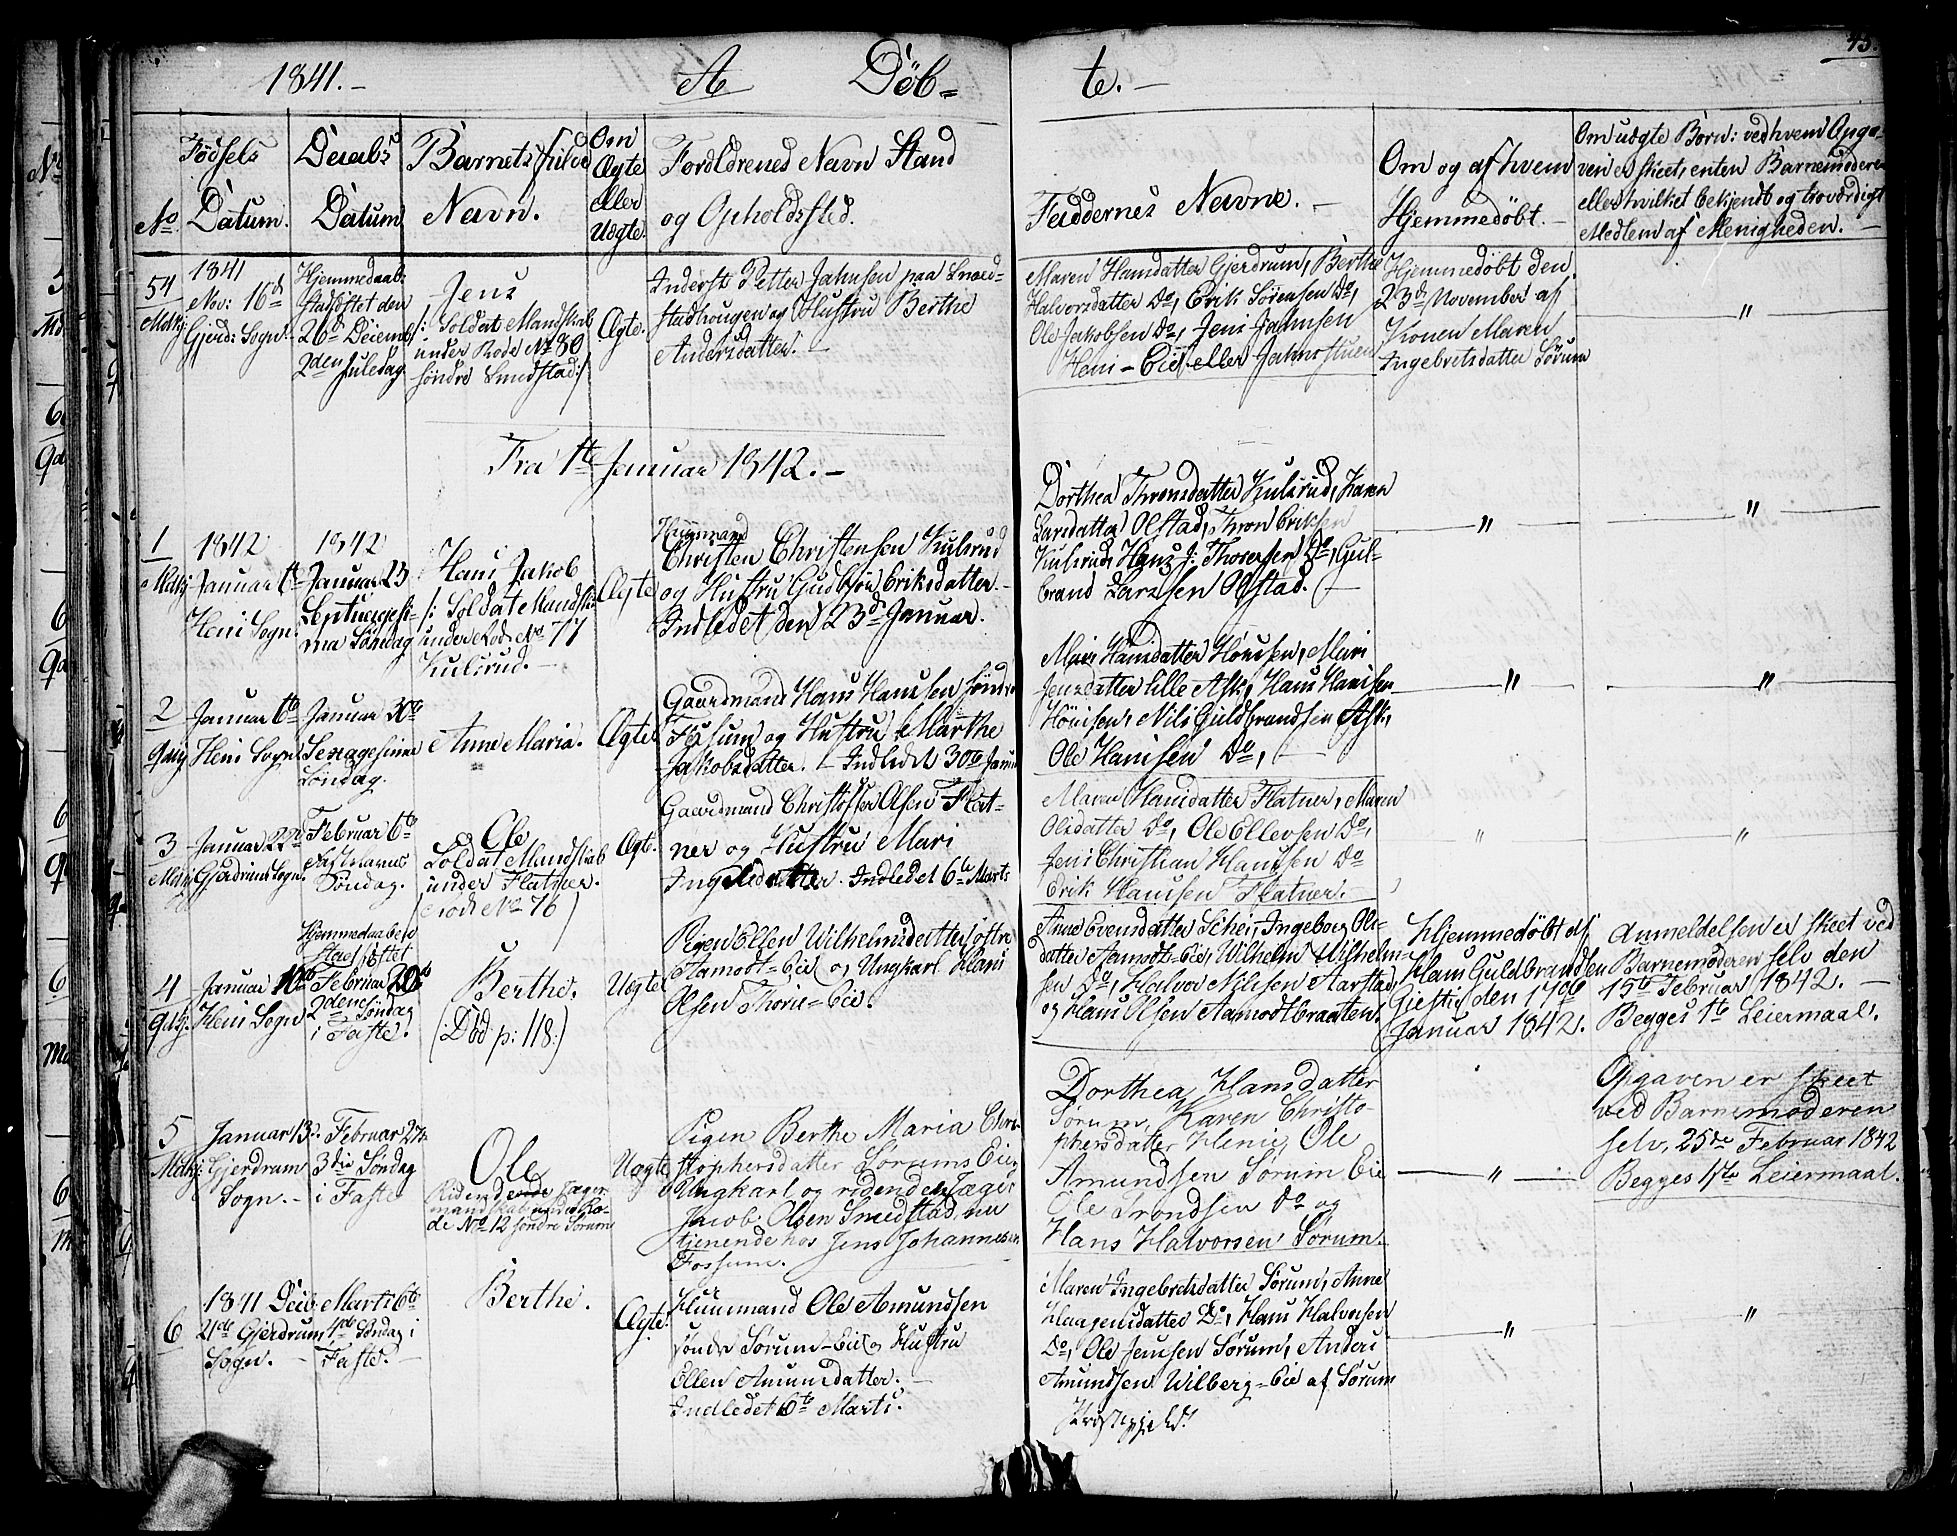 43.
1841.– A Döb= te.–
No.
Fødsels
Datum.
Daabs
Datum
Barnets fulde
Navn.
Om
Ægte
eller
Uægte.
Forældrenes Navn Stand
og Opholdssted.
Faddernes Navne. –
Om og af hvem
Hjemmedøbt. –
Om uægte Børn: ved hvem Opga-
ven er skeet, enten Barnemoderen
eller hvilket bekjendt og troværdigt
Medlem af Menigheden. –
54
Mdkj:
1841
Nov: 16de
Gjerd: Sogn.
Hjemmedaabs
stadfæstet den
26de Decemb
2den Juledag
Jens
/: Soldat Mandskab
under Rode No 80
søndre Smedstad:/
Ægte.
Inderst Petter Jahnsen paa Smed-
stadhougen og Hustru Berthe
Andersdatter. –
Maren Hansdatter Gjerdrum, Berthe
Halvorsdatter Do, Erik Sørensen Do,
Ole Jakobsen Do, Jens Jahnsen
Heni-Eie eller Jahnsstuen
Hjemmedøbt den
23de November af
Konen Maren
Ingebretsdatter Sørum
"
Fra 1te Januar 1842. –
1
Mdkj
1842
Januar 1te
Heni Sogn.
1842
Januar 23
Septuagesi-
ma Søndag
Hans Jakob
/: Soldat Mandskab
under Rode No 77
Kulsrud. –
Ægte
Huusmand
Christen Christensen Kulsrud
og Hustru Gudbjør Eriksdatter –
Indledet den 23de Januar.
Dorthea Thronsdatter Kulsrud, Karen
Larsdatter Olstad, Thron Eriksen
Kulsrud, Hans J. Thoresen Do, Gul-
brand Larssen Olstad. –
"
"
2
Qukj
Januar 6te
Heni Sogn
Januar 30te
Sexagesima
Søndag.
Anne Maria.
Ægte
Gaardmand Hans Hansen søndre
Fusum og Hustru Marthe
Jakobsdatter. – Indledet 30te Janu
Mari Hansdatter Hønsen, Mari
Jensdatter lille Ask, Hans Hansen
Hönsen, Nils Guldbrandsen Ask,
Ole Hansen Do,
"
"
3
Mdkj
Januar 22de
Gjerdrums Sogn.
Februar 6te
Fastelavns
Søndag.
Ole
Soldat Mandskab
under Flatner.
Rode No 76 )
Ægte.
Gaardmand Christoffer Olsen Flat-
ner og Hustru Mari
Indledet 6te Marts
Maren Hansdatter Flatner, Maren
Olsdatter Do, Ole Ellevsen Do,
Jens Christian Hansen Do
Erik Hansen Flatner. –
"
"
4
Qdkj.
Januar 10de
Heni Sogn
Hjemmedaaben
Stadfæstet
Februar 20de
2den Søndag
i Faste.
Berthe.
(: Död p: 118:)
Uægte
Pigen Ellen Wilhelmsdatter østre
Aamodt-Eie og Ungkarl Hans
Olsen Thorie-Eie.
Anne Evensdatter Schei, Ingeborg Ols-
datter Aamodt-Eie, Wilhelm Wilhelm-
sen Do, Halvor Nilsen Aarstad,
og Hans Olsen Aamodtbraaten.
Hjemmedøbt af
Hans Guldbrandsen
Giestie den 17de
Januar 1842.
Anmeldelsen er skeet ved
Barnemoderen selv den
15te Februar 1842. –
Begges 1te Leiermaal.
5
Mdkj.
Januar 13de
Gjerdrum
Sogn. –
Februar 27de
3die Søndag
i Faste
Ole
Ridende Jæger
mandskab under Ro-
de No 12 søndre Sørum
Uægte
Pigen Berthe Maria Chri-
stophersdatter Sørums Eie
Ungkarl og ridende Jæger
Jacob Olsen Smedstad, nu
tjenende hos Jens Johannesen
Fossum.
Dorthea Hansdatter
Sørum, Karen Christo-
phersdatter Henie, Ole
Amundsen Sørum Eie
Ole Trondsen Do og
Hans Halvorsen Sørum.
"
Opgaven er skeet
ved Barnemoderen
selv, 25de Februar 1842
Begges 1te Leiermaal.
6
1841 Decb:
21de Gjerdrum
Sogn. –
Marts 6te
4de Søndag i
Faste. –
Berthe.
Ægte.
Huusmand Ole Amundsen
søndre Sørum-Eie og Hustru
Ellen Amunsdatter. –
Indledet 6te Marts.
Maren Ingebretsdatter Sørum, Anne
Haagensdatter Do, Hans Halvorsen
Do, Ole Jensen Sørum, Anders
Amundsen Wilberg-Eie af Sørum
Præstegjeld.
"
"